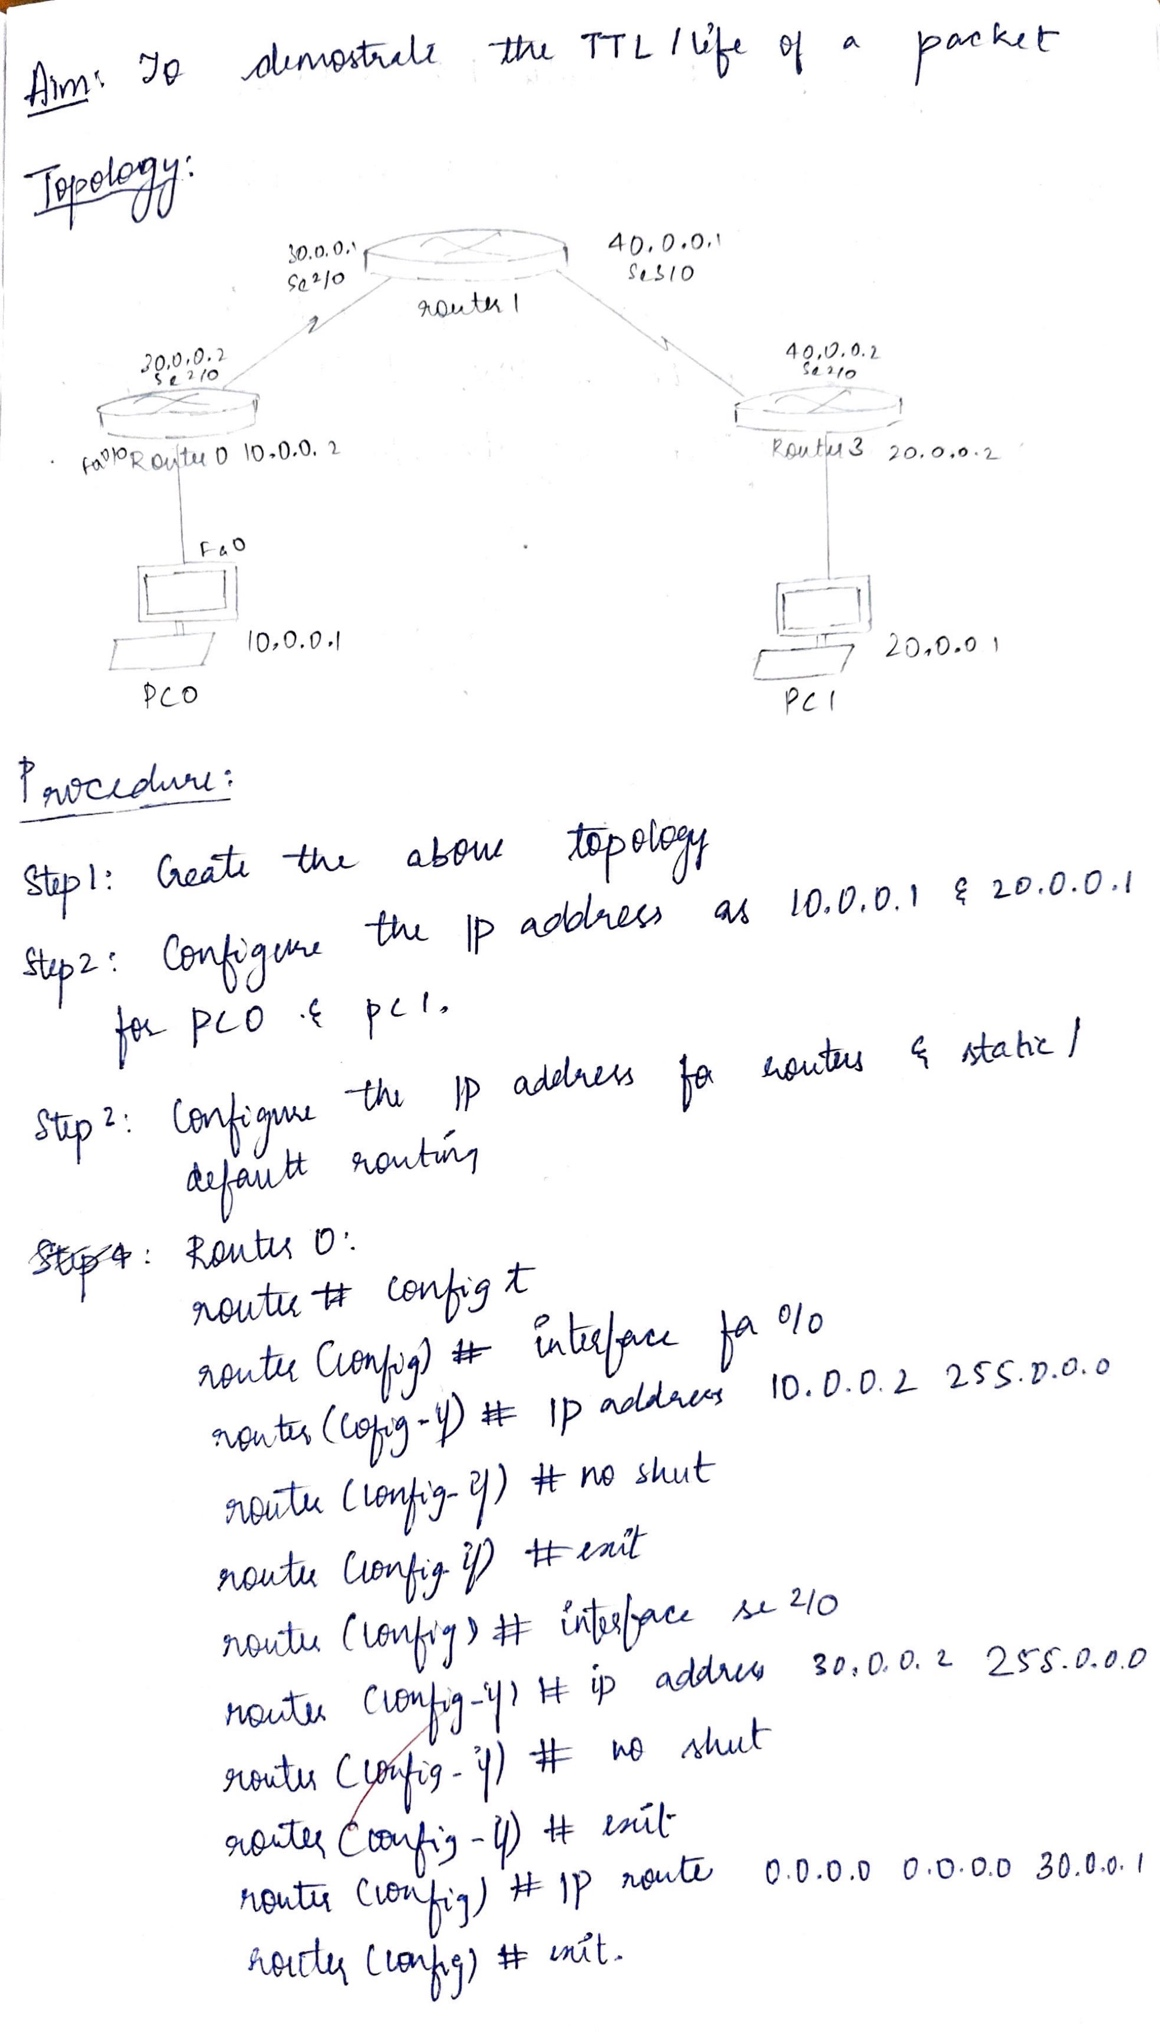 Aim: To demostrate the TTL / life of a packet
Topology:
30.0.0.1
Se2/0
40.0.0.1
Se3/0
router 1
30.0.0.2
Se2/0
40.0.0.2
Se2/0
Fa0/0 Router 0 10.0.0.2
Router 3 20.0.0.2
Fa0
10.0.0.1
20.0.0 1
PC0
PC1
Procedure:
Step1: Create the above topology
Step2: Configure the IP address as 10.0.0.1 & 20.0.0.1
for PC0 & PC1.
Step 3: Configure the IP address for routers & static /
default routing
Step 4: Router 0:
router # config t
router (config) # interface fa 0/0
router (cofig-if) # IP address 10.0.0.2 255.0.0.0
router (config-if) # no shut
router (config-if) # exit
router (config) # interface se 2/0
router (config-if) # ip address 30.0.0.2 255.0.0.0
router (config-if) # no shut
router (config-if) # exit
router (config) # IP route 0.0.0.0 0.0.0.0 30.0.0.1
router (config) # exit.